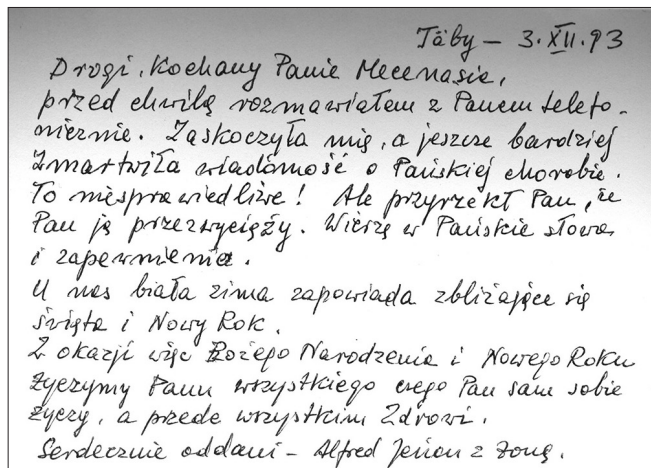 Täby – 3.XII.93
Drogi, Kochany Panie Mecenasie,
przed chwilą rozmawiałem z Panem telefo-
nicznie. Zaskoczyła mię, a jeszcze bardziej
zmartwiła wiadomość o Pańskiej chorobie.
To niesprawiedliwe! Ale przyrzekł Pan, że
Pan ją przezwycięży. Wierzę w Pańskie słowa
i zapewnienia.
U nas biała zima zapowiada zbliżające się
święta i Nowy Rok.
Z okazji więc Bożego Narodzenia i Nowego Roku
życzymy Panu wszystkiego czego Pan sam sobie
życzy, a przede wszystkim Zdrowia.
Serdecznie oddani – Alfred z żoną.